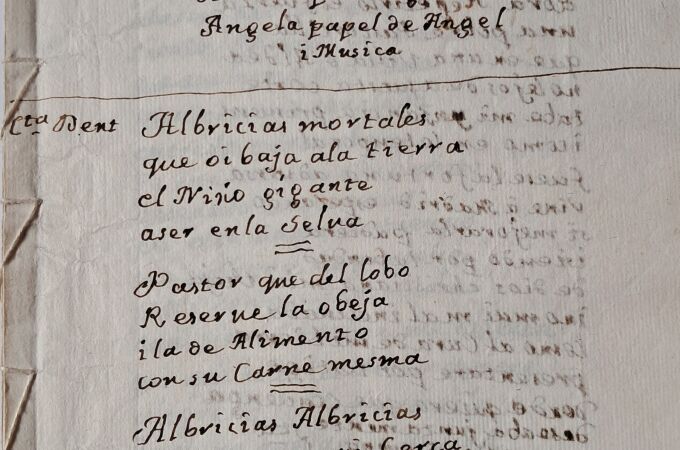 Angela papel de Angel
i Musica
Cta Dent Albricias mortales
que oi baja ala tierra
el Niño gigante
aser enla Selva
Pastor que del lobo
Reserve la obeja
ila de Alimento
con su Carne mesma
Albricias Albricias
Cerca